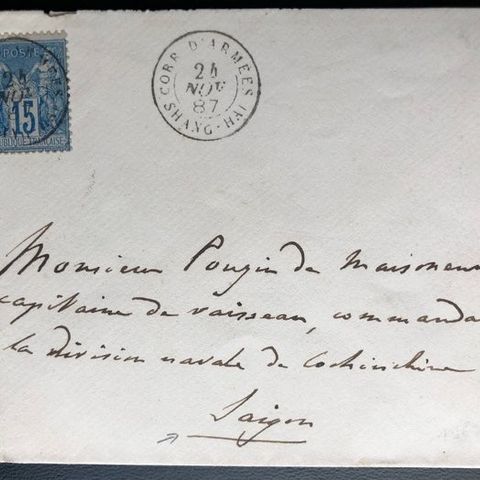 POSTE
15
RÉPUBLIQUE FRANÇAISE
CORR. D'ARMÉES
24
NOV
87
SHANG-HAI
Monsieur Pougin de Maisonneu
capitaine de vaisseau, commanda
la division navale de Cochinchine
Saïgon